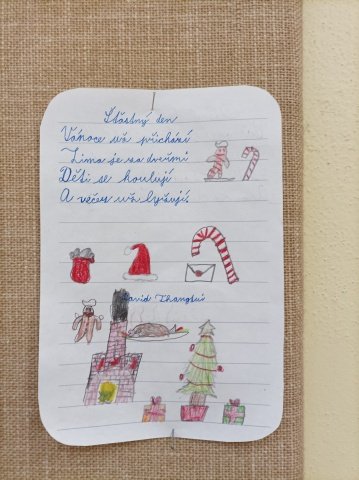 Šťastný den
Vánoce už přichází
Zima je za dveřmi
Děti se koulují
A večer už lyžují.
David